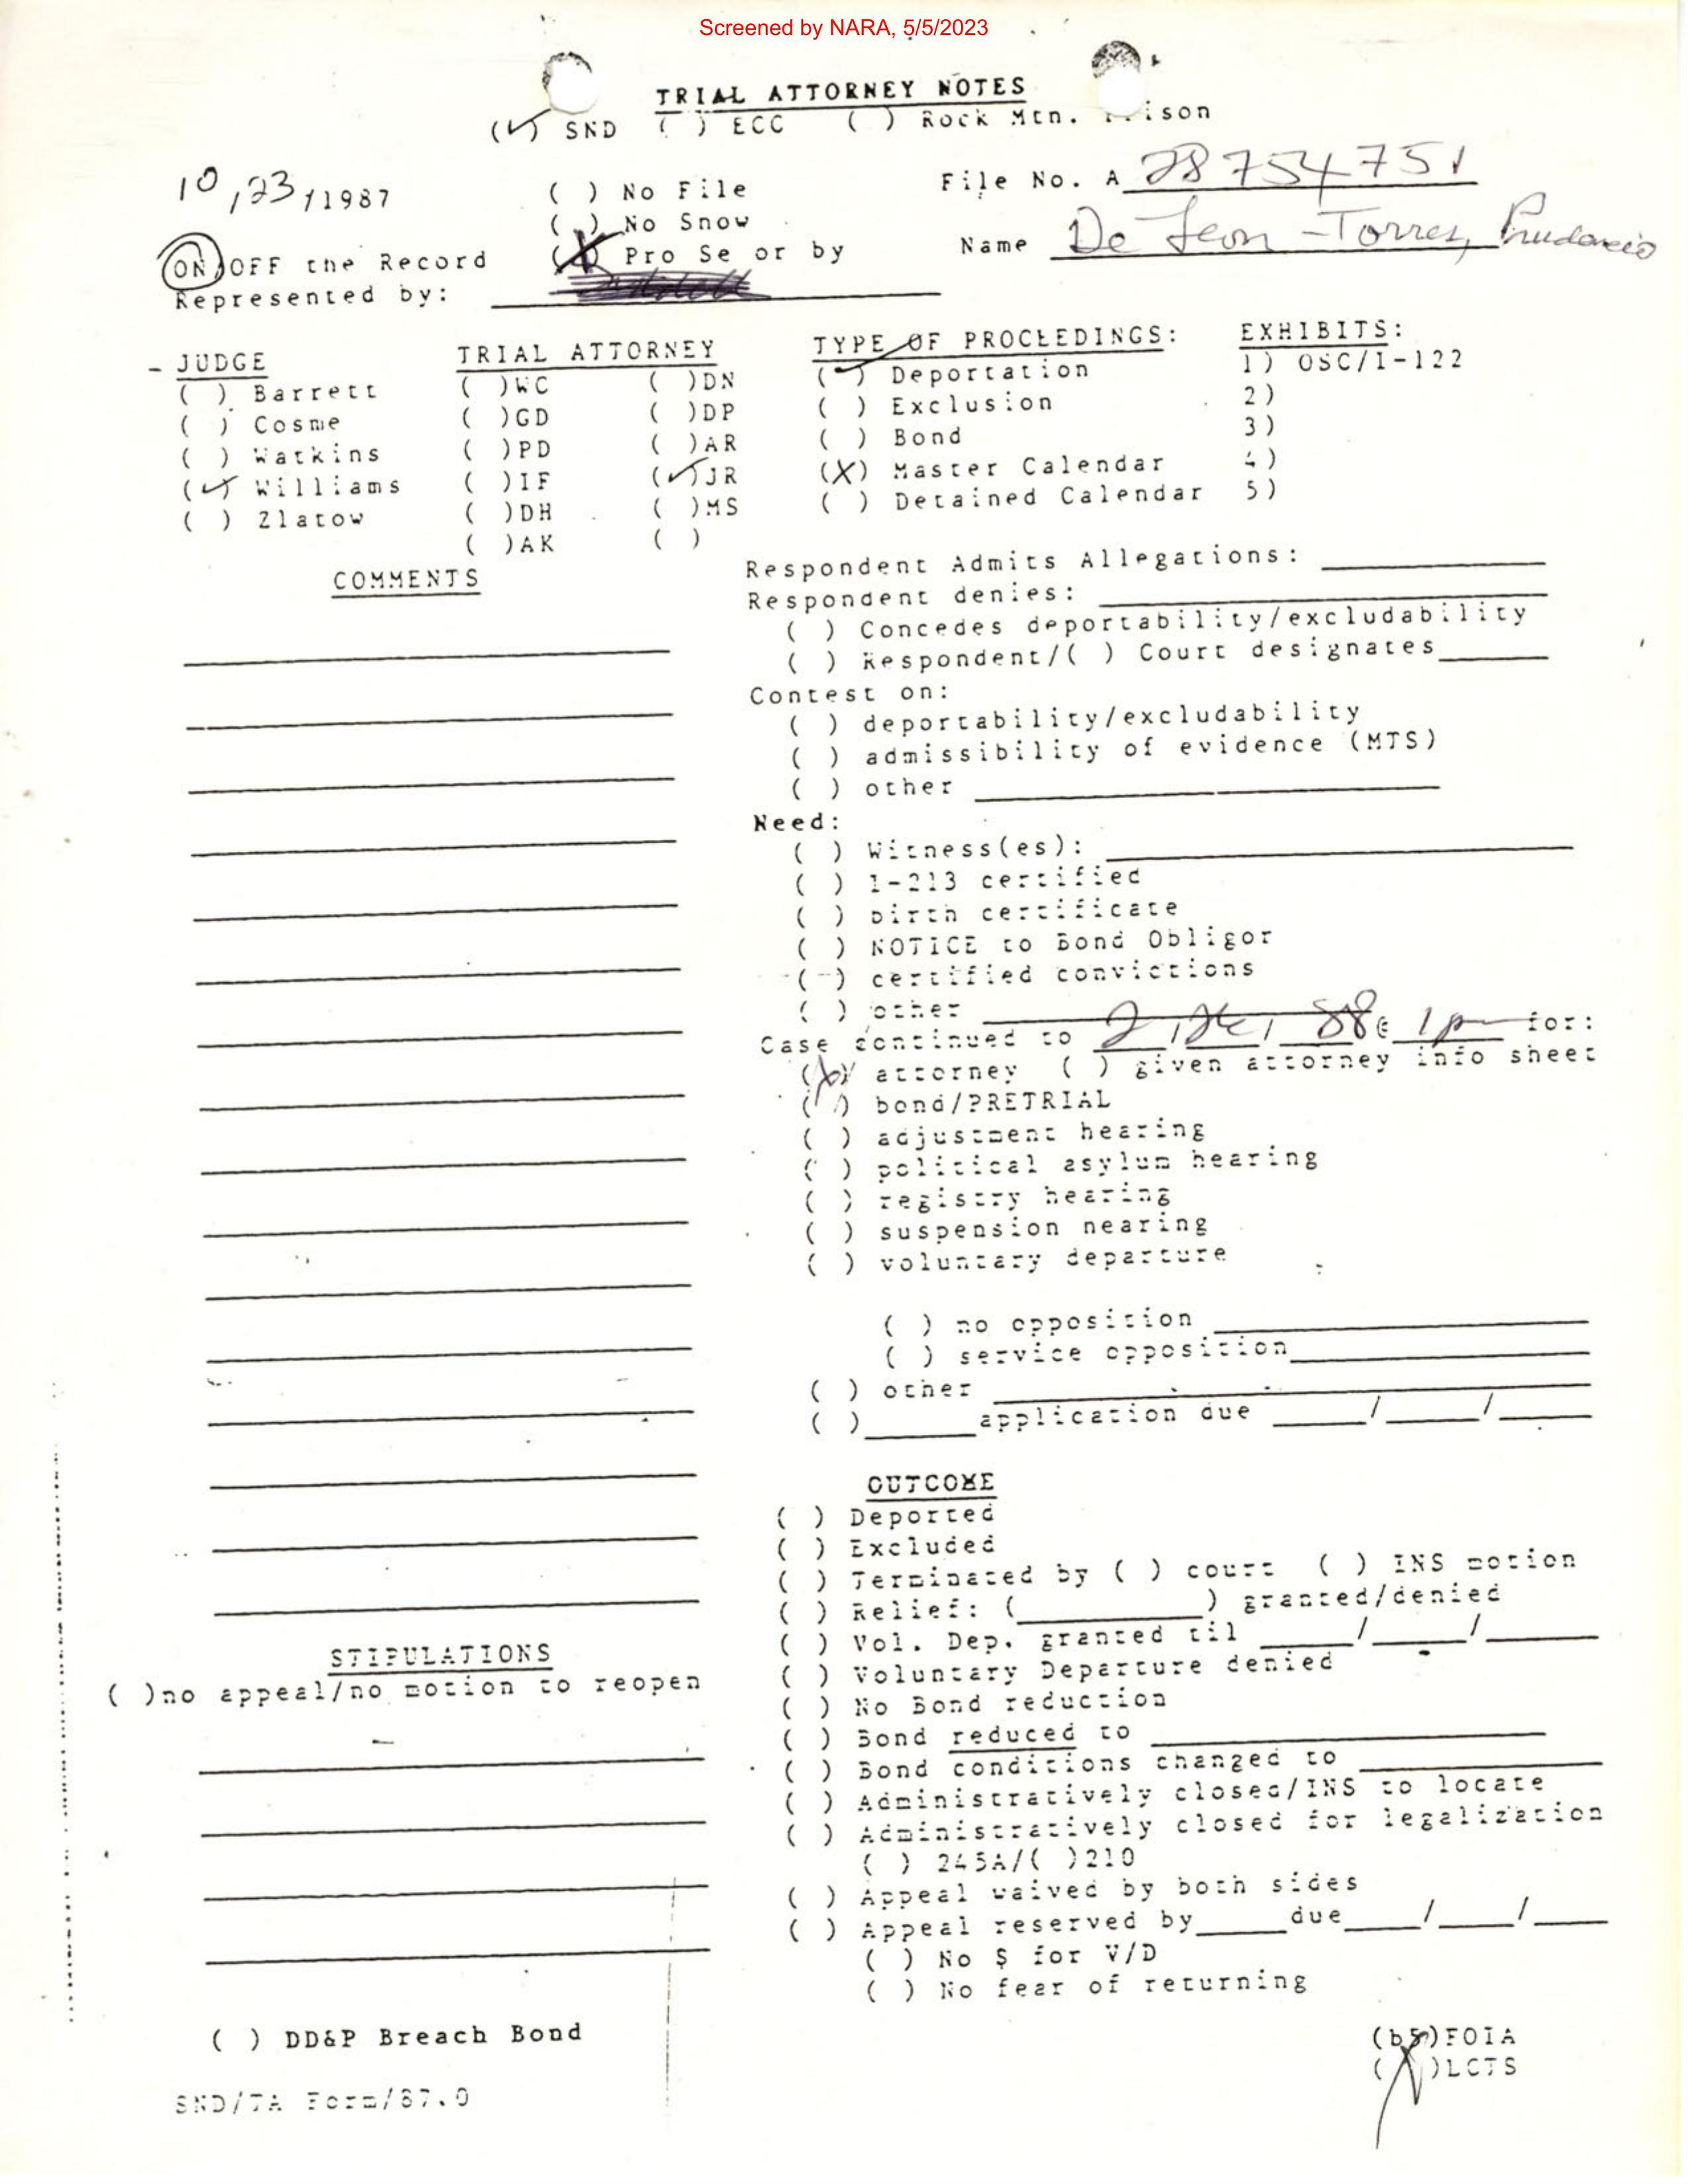 Screened by NARA, 5/5/2023
TRIAL ATTORNEY NOTES
(✓) SND ( ) ECC ( ) Rock Mtn. ison
10/23/1987
( ) No File
File No. A 28 754 751
( ) No Snow
ON/OFF the Record
(X) Pro Se or by
Name De Leon-Torres, Prudencio
Represented by:
- JUDGE
( ) Barrett
( ) Cosme
( ) Watkins
(✓) Williams
( ) Zlatow
TRIAL ATTORNEY
( )WC ( )DN
( )GD ( )DP
( )PD ( )AR
( )IF (✓)JR
( )DH ( )MS
( )AK ( )
TYPE OF PROCEEDINGS:
(✓) Deportation
( ) Exclusion
( ) Bond
(X) Master Calendar
( ) Detained Calendar
EXHIBITS:
1) OSC/I-122
2)
3)
4)
5)
COMMENTS
Respondent Admits Allegations:
Respondent denies:
( ) Concedes deportability/excludability
( ) Respondent/( ) Court designates
Contest on:
( ) deportability/excludability
( ) admissibility of evidence (MTS)
( ) other
Need:
( ) Witness(es):
( ) I-213 certified
( ) birth certificate
( ) NOTICE to Bond Obligor
( ) certified convictions
( ) other
Case continued to 2 / 26 / 88 @ 1pm for:
(X) attorney ( ) given attorney info sheet
( ) bond/PRETRIAL
( ) adjustment hearing
( ) political asylum hearing
( ) registry hearing
( ) suspension hearing
( ) voluntary departure
( ) no opposition
( ) service opposition
( ) other
( ) application due / /
OUTCOME
( ) Deported
( ) Excluded
( ) Terminated by ( ) court ( ) INS motion
( ) Relief: ( ) granted/denied
( ) Vol. Dep. granted til / /
( ) Voluntary Departure denied
( ) No Bond reduction
( ) Bond reduced to
( ) Bond conditions changed to
( ) Administratively closed/INS to locate
( ) Administratively closed for legalization
( ) 245A/( )210
( ) Appeal waived by both sides
( ) Appeal reserved by due / /
( ) No $ for V/D
( ) No fear of returning
STIPULATIONS
( )no appeal/no motion to reopen
( ) DD&P Breach Bond
(b5)FOIA
( )LCTS
SND/TA Form/87.0